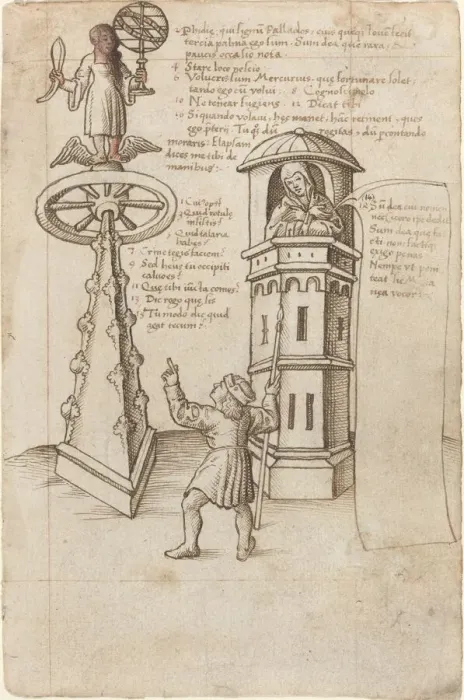 2 Phidie, qui signū Pallados, eius quiqȝ Iouē fecit
tercia palma ego sum. Sum dea que rara, &
paucis occasio nota.
4 Stare loco nescio
6 Volucres sum. Mercurius, que fortunare solet
tardo ego cū volui. 8 Cognosci nolo
10 Ne tenear fugiens. 12 Dicat tibi
Si quando volaui, hęc manet, hāc retinent, quos
ego pterii. Tu qȝ dū regitas, dū pcontando
moraris. Elapsam
dices me tibi de
manibus.
1 Cui opꝰ?
3 Quid rotule
insistis?
5 Quid talaria
habes?
7 Crine tegis faciem?
9 Sed heus tu occipiti
caluo es?
11 Que tibi iūcta comes?
13 Dic rogo que sis
15 Tu modo dic quid
agat tecum?
(14)
Sū dea cui nomen
nec cicero ipse dedit
Sum dea que fa
cti non factiqȝ
exigo penas
Nempe vt peni
teat sic Meta
nea vocor